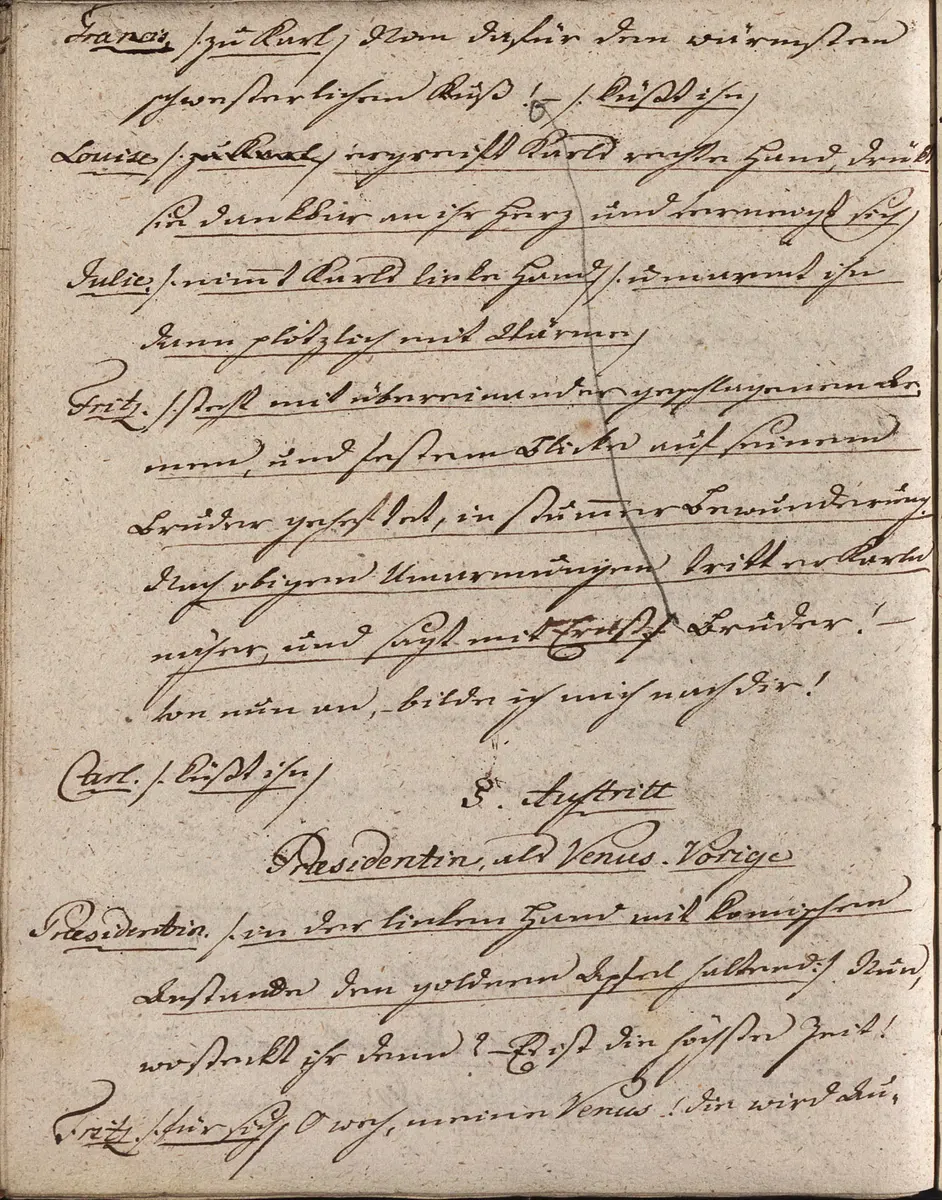 Francis. /: zu Karl /: Nun dafür den wärmsten
schwesterlichen Kuß! – /: küßt ihn /
Louise /: zu Karl / ergreift Karls rechte Hand, drükt
sie dankbar an ihr Herz und verneigt sich /
Julie. /: nimmt Karls linke Hand / /: umarmt ihn
dann plötzlich mit Wärme /
Fritz. /: steht mit übereinander geschlagenen Ar,
men, und festem Blicke auf seinem
Bruder geheftet, in stummer Bewunderung.
Nach obigen Umarmungen tritt er Karln
näher, und sagt mit Ernst / Bruder! –
von nun an, – bilde ich mich nach dir!
Carl. /: küßt ihn /
8. Auftritt
Præsidentin, als Venus. Vorige
Præsidentin. /: in der linken Hand mit komischem
Anstande den goldnen Apfel haltend :/ Nun,
wo steckt ihr denn? – Es ist die höchste Zeit!
Fritz. /: für sich / O weh, meine Venus! die wird Au-